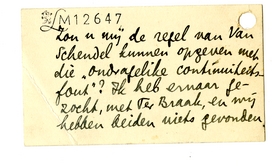 M12647
Zou u mij de regel van Van
Schendel kunnen opgeven met
die „ondragelike continuiteits
fout"? Ik heb ernaar ge-
zocht, met Ter Braak, en wij
hebben beiden niets gevonden